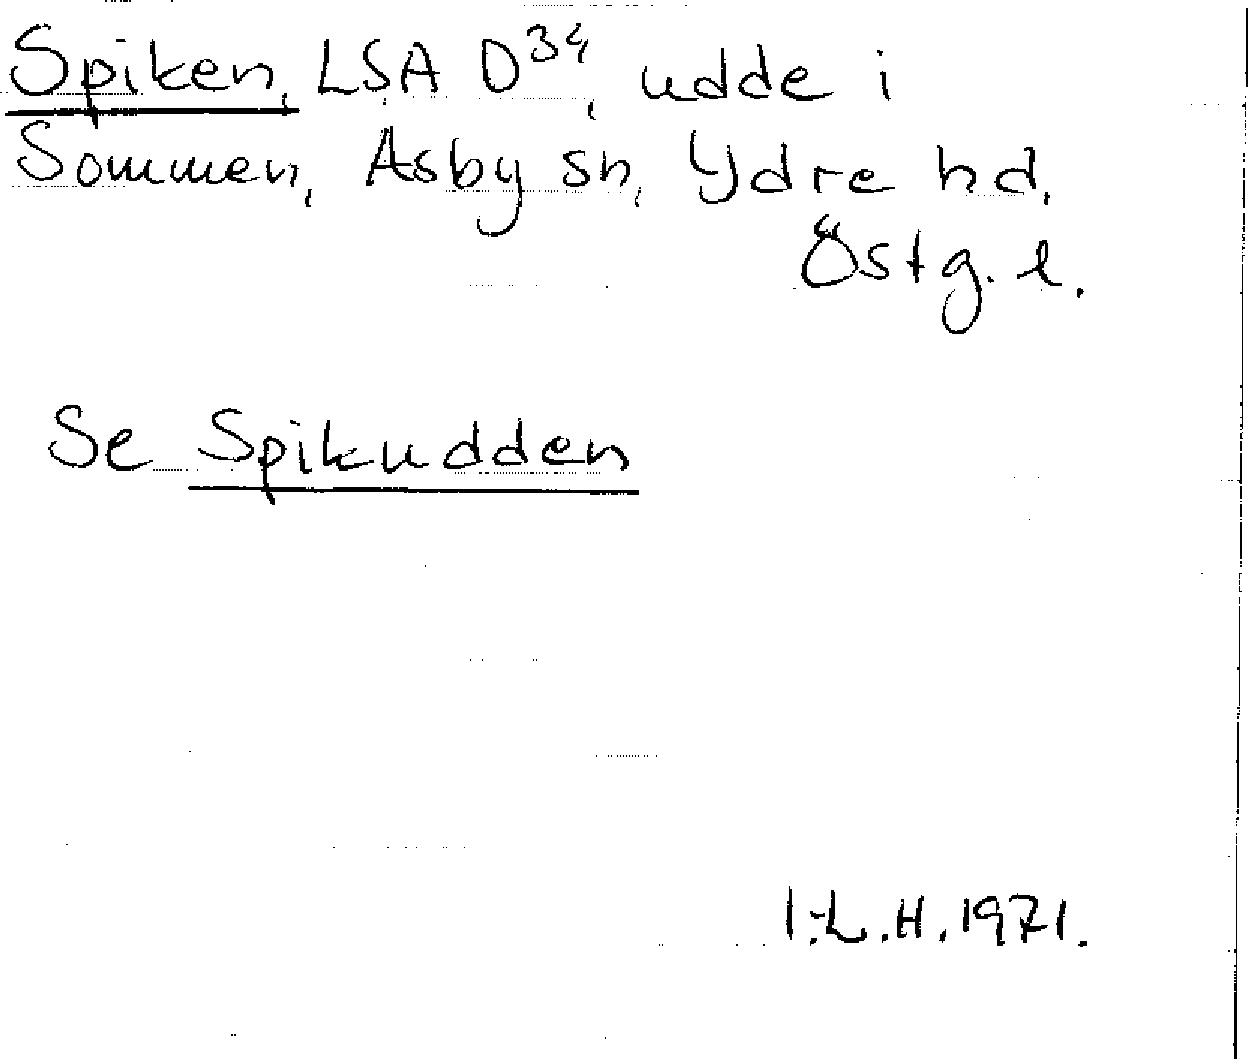 Spiken, LSA D³⁴, udde i
Sommen, Asby sn, Ydre hd,
Östg. l.
Se Spikudden
I.-L.H. 1971.